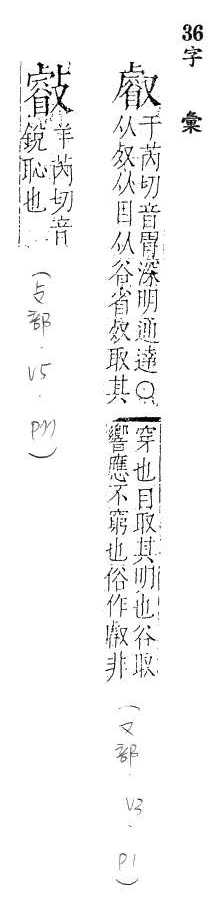 36
字彙
叡
于芮切音胃深明通達○
从𣦼从目从谷省𣦼取其
穿也目取其明也谷取
響應不窮也俗作非
(又部．V3．P1)
羊芮切音
銳恥也
(支部．V5．)